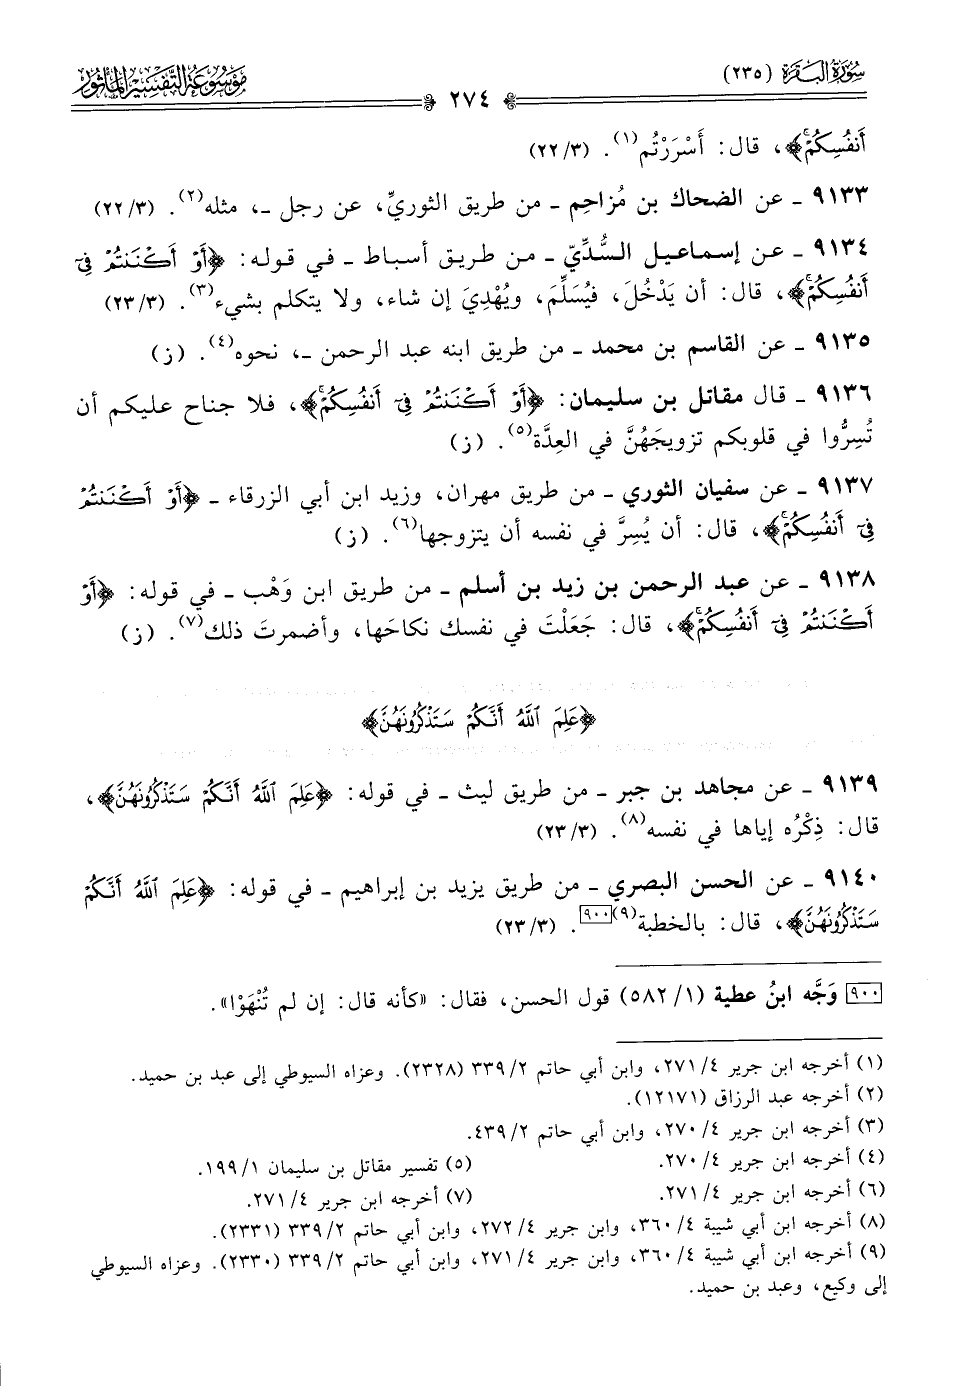 سُورَةُ البَقَرَة (٢٣٥)
٢٧٤
مَوْسُوعَةُ التَّفْسِيرِ المَأْثُور
أَنفُسِكُمْۚ﴾، قال: أَسْرَرْتُم(١). (٢٢/٣)
٩١٣٣ ـ عن الضحاك بن مُزاحِم ـ من طريق الثوريِّ، عن رجل ـ، مثله(٢). (٢٢/٣)
٩١٣٤ ـ عن إسماعيل السُّدِّيّ ـ من طريق أسباط ـ في قوله: ﴿أَوْ أَكْنَنتُمْ فِىٓ
أَنفُسِكُمْۚ﴾، قال: أن يَدْخُلَ، فيُسَلِّمَ، ويُهْدِيَ إن شاء، ولا يتكلم بشيء(٣). (٢٣/٣)
٩١٣٥ ـ عن القاسم بن محمد ـ من طريق ابنه عبد الرحمن ـ، نحوه(٤). (ز)
٩١٣٦ ـ قال مقاتل بن سليمان: ﴿أَوْ أَكْنَنتُمْ فِىٓ أَنفُسِكُمْۚ﴾، فلا جناح عليكم أن
تُسِرُّوا في قلوبكم تزويجَهُنَّ في العِدَّة(٥). (ز)
٩١٣٧ ـ عن سفيان الثوري ـ من طريق مهران، وزيد ابن أبي الزرقاء ـ ﴿أَوْ أَكْنَنتُمْ
فِىٓ أَنفُسِكُمْۚ﴾، قال: أن يُسِرَّ في نفسه أن يتزوجها(٦). (ز)
٩١٣٨ ـ عن عبد الرحمن بن زيد بن أسلم ـ من طريق ابن وَهْب ـ في قوله: ﴿أَوْ
أَكْنَنتُمْ فِىٓ أَنفُسِكُمْۚ﴾، قال: جَعَلْتَ في نفسك نكاحَها، وأضمرتَ ذلك(٧). (ز)
﴿عَلِمَ ٱللَّهُ أَنَّكُمْ سَتَذْكُرُونَهُنَّ﴾
٩١٣٩ ـ عن مجاهد بن جبر ـ من طريق ليث ـ في قوله: ﴿عَلِمَ ٱللَّهُ أَنَّكُمْ سَتَذْكُرُونَهُنَّ﴾،
قال: ذِكْرُه إياها في نفسه(٨). (٢٣/٣)
٩١٤٠ ـ عن الحسن البصري ـ من طريق يزيد بن إبراهيم ـ في قوله: ﴿عَلِمَ ٱللَّهُ أَنَّكُمْ
سَتَذْكُرُونَهُنَّ﴾، قال: بالخطبة(٩)[٩٠٠]. (٢٣/٣)
[٩٠٠] وَجَّه ابنُ عطية (٥٨٢/١) قول الحسن، فقال: «كأنه قال: إن لم تُنْهَوْا».
(١) أخرجه ابن جرير ٢٧١/٤، وابن أبي حاتم ٣٣٩/٢ (٢٣٢٨). وعزاه السيوطي إلى عبد بن حميد.
(٢) أخرجه عبد الرزاق (١٢١٧١).
(٣) أخرجه ابن جرير ٢٧٠/٤، وابن أبي حاتم ٤٣٩/٢.
(٤) أخرجه ابن جرير ٢٧٠/٤. (٥) تفسير مقاتل بن سليمان ١٩٩/١.
(٦) أخرجه ابن جرير ٢٧١/٤. (٧) أخرجه ابن جرير ٢٧١/٤.
(٨) أخرجه ابن أبي شيبة ٣٦٠/٤، وابن جرير ٢٧٢/٤، وابن أبي حاتم ٣٣٩/٢ (٢٣٣١).
(٩) أخرجه ابن أبي شيبة ٣٦٠/٤، وابن جرير ٢٧١/٤، وابن أبي حاتم ٣٣٩/٢ (٢٣٣٠). وعزاه السيوطي
إلى وكيع، وعبد بن حميد.